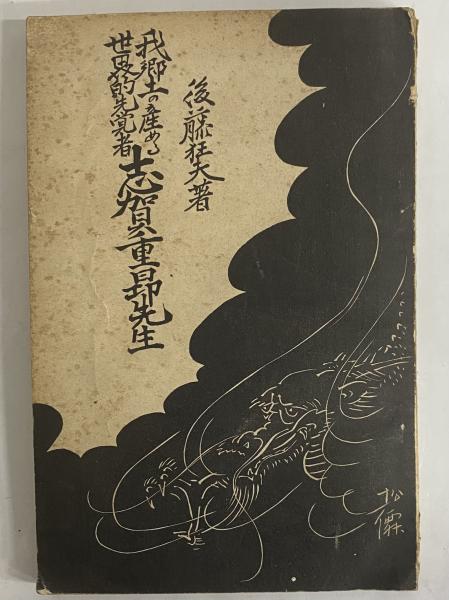 後藤狂夫著
我郷土の産める
世界的先覚者
志賀重昂先生
松僊